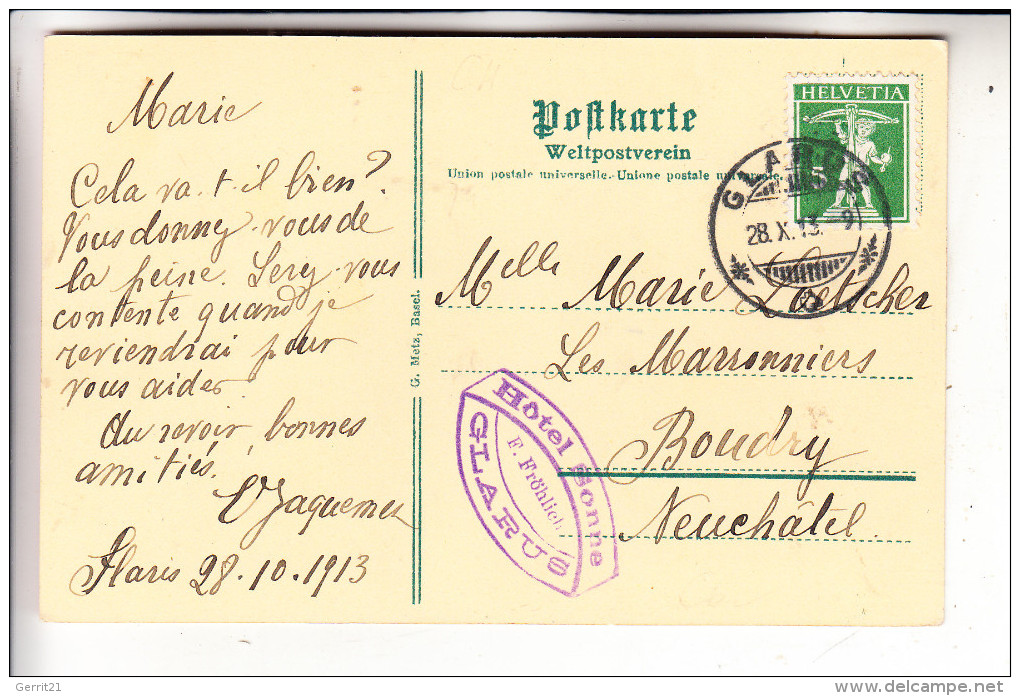 Marie
Cela va-t-il bien?
Vous donnez-vous de
la peine. Serez-vous
contente quand je
reviendrai pour
vous aider.
Au revoir, bonnes
amitiés.
Glaris 28.10.1913
G. Metz, Basel.
Postkarte
Weltpostverein
Union postale universelle.-Unione postale universale.
HELVETIA
5
GLARUS
28.X.13.-9
Melle Marie Loetscher
Les Marronniers
Boudry
Neuchâtel
Hôtel Sonne
F. Fröhlich
GLARUS
Gerrit21
delcampe.net